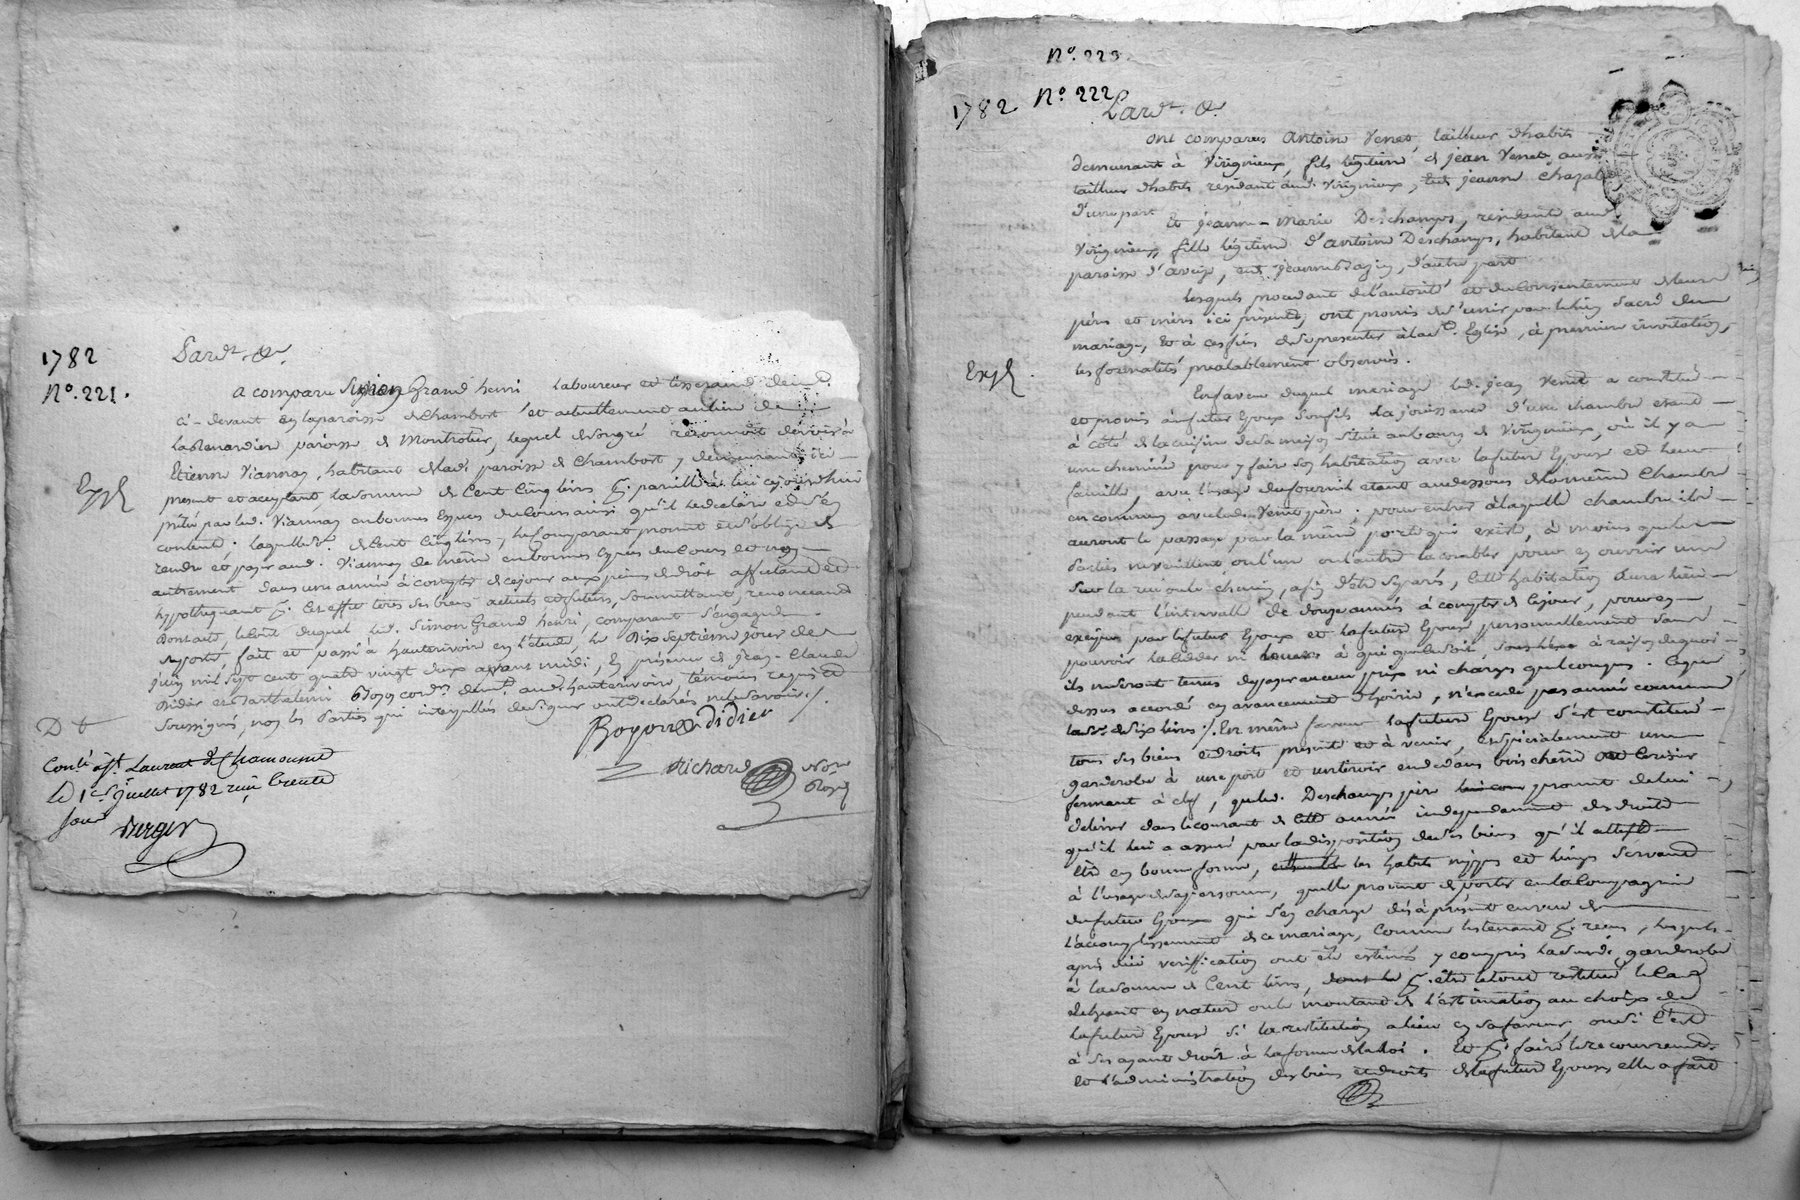 1782
N°. 221.
Pard.t &c
a comparu Simon Grand henri laboureur et tisserand dem.t
ci-devant en la paroisse de Chambost et actuellement au lieu de
la Menardiere paroisse de Montrotier, lequel de son gré reconnoit devoir à
Etienne Viannay, habitant de lad. paroisse de Chambost, y demeurant ici
Expé
present et acceptant, la somme de Cent Cinq livres pareille à lui cejourdhui
prêtée par led. Viannay en bonnes Especes du Cours ainsi qu'il le declare et s'en
contente; laquelle de Cent Cinq livres, le Comparant promet et s'oblige de
rendre et payer aud. Viannay de même en bonnes Especes du Cours et non
autrement dans une année à compter de ce jour aux peines de droit affectant et
hypothequant à Cet effet tous ses biens actuels et futurs, soumettant, renoncant
dont acte led. Simon Grand henri, comparant
fait et passé à hauterivoire en l'étude, le Dix Septieme jour de
juin mil sept cent quatre vingt deux avant midi, En présence de Jean-Claude
Didier et Barthelemi Boyon cord.r dem.t aud. hauterivoire témoins requis et
Soussignés, non les Parties qui interpellées de signer ont declarés ne le savoir ./.
Boyon Didier
D t
Richard Not.re Royal
Con.lé à St. Laurent de Chamousset
le 1.er juillet 1782 reçu trente
sous
Verger
N°. 223.
1782 N° 222
Pard.t &c
Ont comparus Antoine Venet, tailleur d'habits
demeurant à Virignieux, fils légitime de jean Venet aussi
tailleur d'habits residant aud. Virignieux, et jeanne Chazal
d'une part
Et jeanne-Marie Deschamps, residante aud.
Virignieux fille légitime d'Antoine Deschamps, habitant de la
paroisse d'aveize, et jeanne , d'autre part
Lesquels procedant de l'autorité et du Consentement de leurs
péres et méres ici présents, ont promis de s'unir par le lien Sacré du
mariage, et à ces fins de se presenter à la Eglise, à premiere invitation,
les formalités prealablement observées.
Expé
En faveur duquel mariage led. jean Venet a constitué
et promis au futur Epoux son fils la jouissance d'une chambre etant
à côté de la cuisine de sa maison située au bourg de Virignieux, où il y a
une cheminée pour y faire son habitation avec la future Epouse et leur
famille, avec l'usage du fournil etant au dessous de la même Chambre
en commun avec led. Venet pere; pour entrer à laquelle chambre ils
auront le passage par la même porte qui existe, à moins que les
Parties ne veuillent ou l'un ou l'autre la combler pour en ouvrir une
sur la rue ou le chemin, afin d'etre séparés, Cette habitation aura lieu
pendant l'intervalle de douze années à compter de ce jour, pour en
par le futur Epoux et la future Epouse personnellement sans
pouvoir la ceder ni louer à qui que ce soit, à raison de quoi
ils ne seront tenus de payer aucun prix ni charges quelconques. Ce que
dessus accordé en avancement d'hoirie, n'excede pas année commune
la de six livres ./. En même faveur la future Epouse s'est constitué
tous ses biens et droits présents et à venir, et spécialement une
garderobe à une porte et un tiroir en dedans bois chêne et Cerisier
fermant à clef, que led. Deschamps pere promet de lui
delivrer dans le courant de cette année independamment des droits
qu'il lui a assuré par la disposition de ses biens qu'il atteste
être en bonne forme, les habits nippes et linges servant
à l'usage de sa personne, qu'elle promet de porter en la Compagnie
du futur Epoux qui s'en charge dès à présent en vue de
l'accomplissement de ce mariage, comme les tenant reçus, lesquels
après due verification ont été estimés y compris lad. garderobe
à la somme de Cent livres, pour être le tout restitué le Cas
echeant en nature ou le montant de l'estimation au choix de
la future Epouse si la restitution a lieu en sa faveur, ou si C'est
à ses ayant droit à la forme de la loi. Et faire le recouvrement
et l'administration des biens et droits de la future Epouse, elle a fait